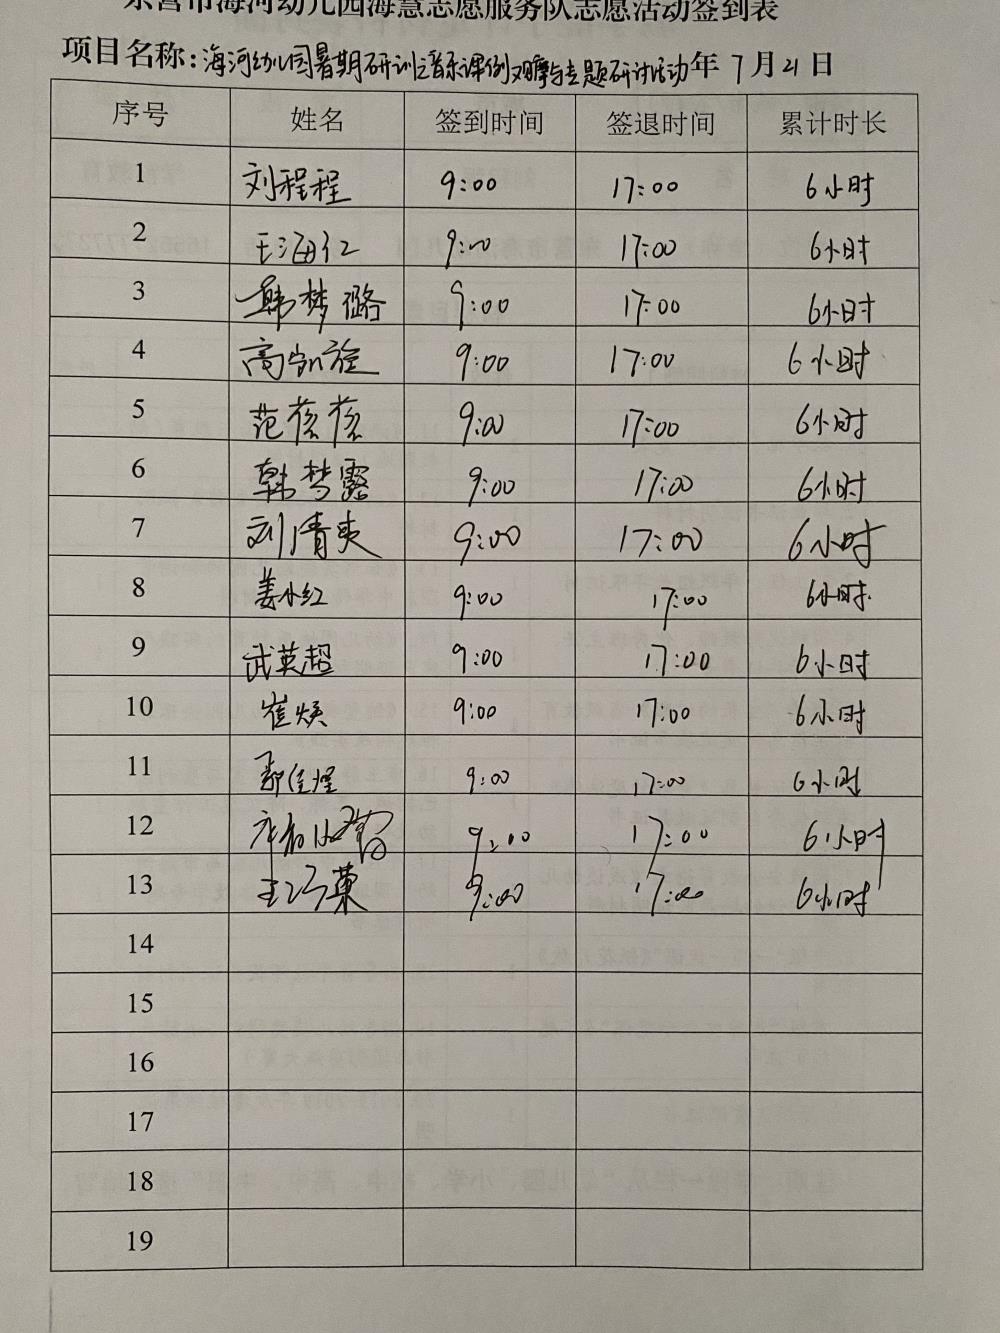 东营市海河幼儿园海慧志愿服务队志愿活动签到表
项目名称:海河幼儿园暑期研训之音乐课例观摩与专题研讨活动 年 7 月 21 日
序号 姓名 签到时间 签退时间 累计时长
1 刘程程 9:00 17:00 6小时
2 王海红 9:00 17:00 6小时
3 韩梦璐 9:00 17:00 6小时
4 高凯旋 9:00 17:00 6小时
5 范蓓蓓 9:00 17:00 6小时
6 韩梦露 9:00 17:00 6小时
7 刘清爽 9:00 17:00 6小时
8 姜小红 9:00 17:00 6小时
9 武英超 9:00 17:00 6小时
10 崔焕 9:00 17:00 6小时
11 9:00 17:00 6小时
12 9:00 17:00 6小时
13 9:00 17:00 6小时
14
15
16
17
18
19